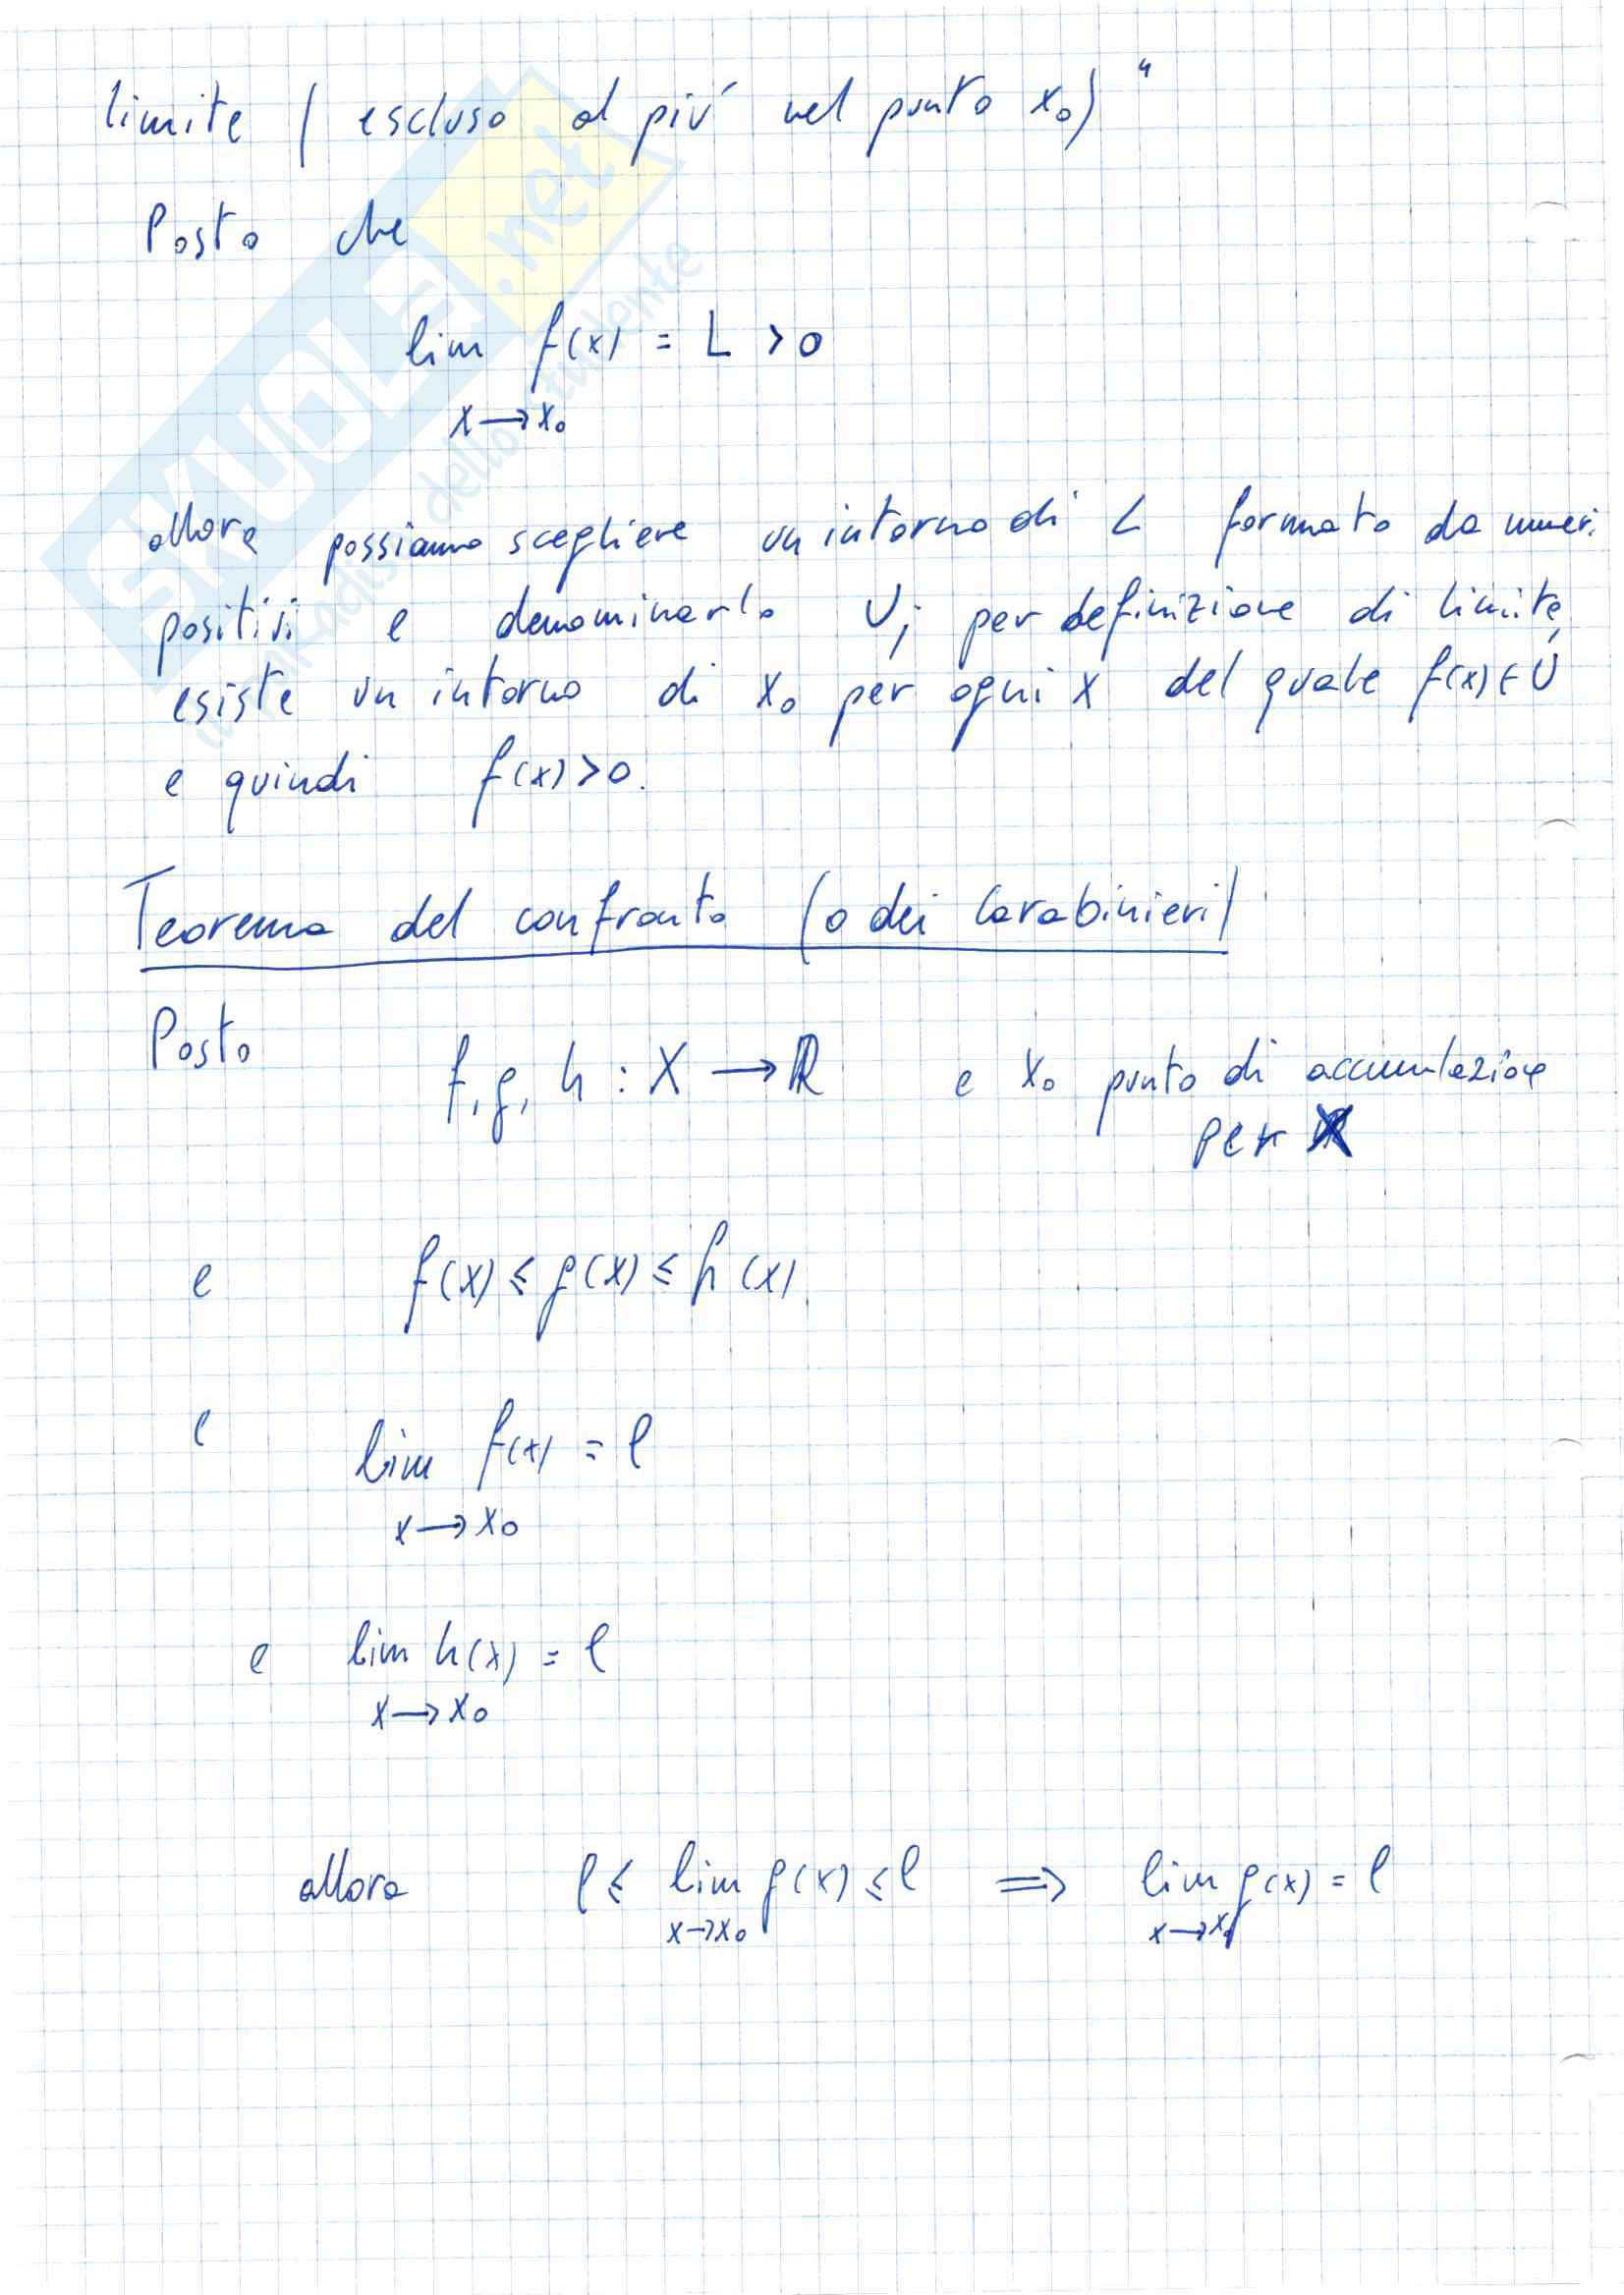 limite (escluso al più nel punto x₀)"
Posto che
lim f(x) = L > 0
x → x₀
allora possiamo scegliere un intorno di L formato da numeri
positivi e denominarlo U; per definizione di limite,
esiste un intorno di x₀ per ogni x del quale f(x) ∈ U
e quindi f(x) > 0.
Teorema del confronto (o dei Carabinieri)
Posto f, g, h : X → ℝ e x₀ punto di accumulazione
per X
e f(x) ≤ g(x) ≤ h(x)
e lim f(x) = ℓ
x → x₀
e lim h(x) = ℓ
x → x₀
allora ℓ ≤ lim g(x) ≤ ℓ ⟹ lim g(x) = ℓ
x → x₀ x → x₀
SKUOLa.net